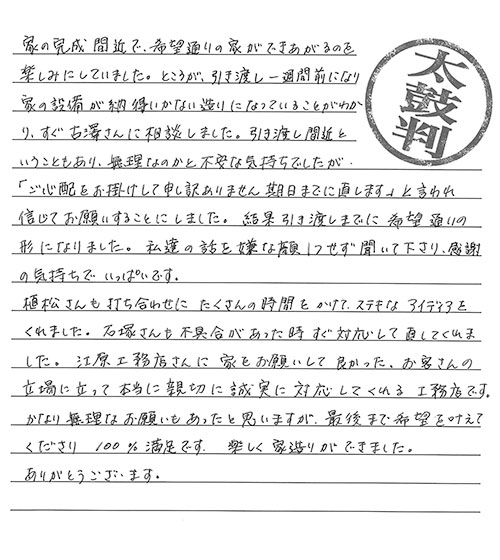 家の完成間近で、希望通りの家ができあがるのを
楽しみにしていました。ところが、引き渡し一週間前になり
家の設備が納得いかない造りになっていることがわか
り、すぐ古澤さんに相談しました。引き渡し間近と
いうこともあり、無理なのかと不安な気持ちでしたが、
「ご心配をお掛けして申し訳ありません期日までに直します」と言われ
信じてお願いすることにしました。結果引き渡しまでに希望通りの
形になりました。私達の話を嫌な顔1つせず聞いて下さり、感謝
の気持ちでいっぱいです。
植松さんも打ち合わせにたくさんの時間をかけて、ステキなアイディアを
くれました。石塚さんも不具合があった時すぐ対応して直してくれま
した。江原工務店さんに家をお願いして良かった、お客さんの
立場に立って本当に親切に誠実に対応してくれる工務店です。
かなり無理なお願いもあったと思いますが、最後まで希望を叶えて
くださり 100%満足です。楽しく家造りができました。
ありがとうございます。
太鼓判